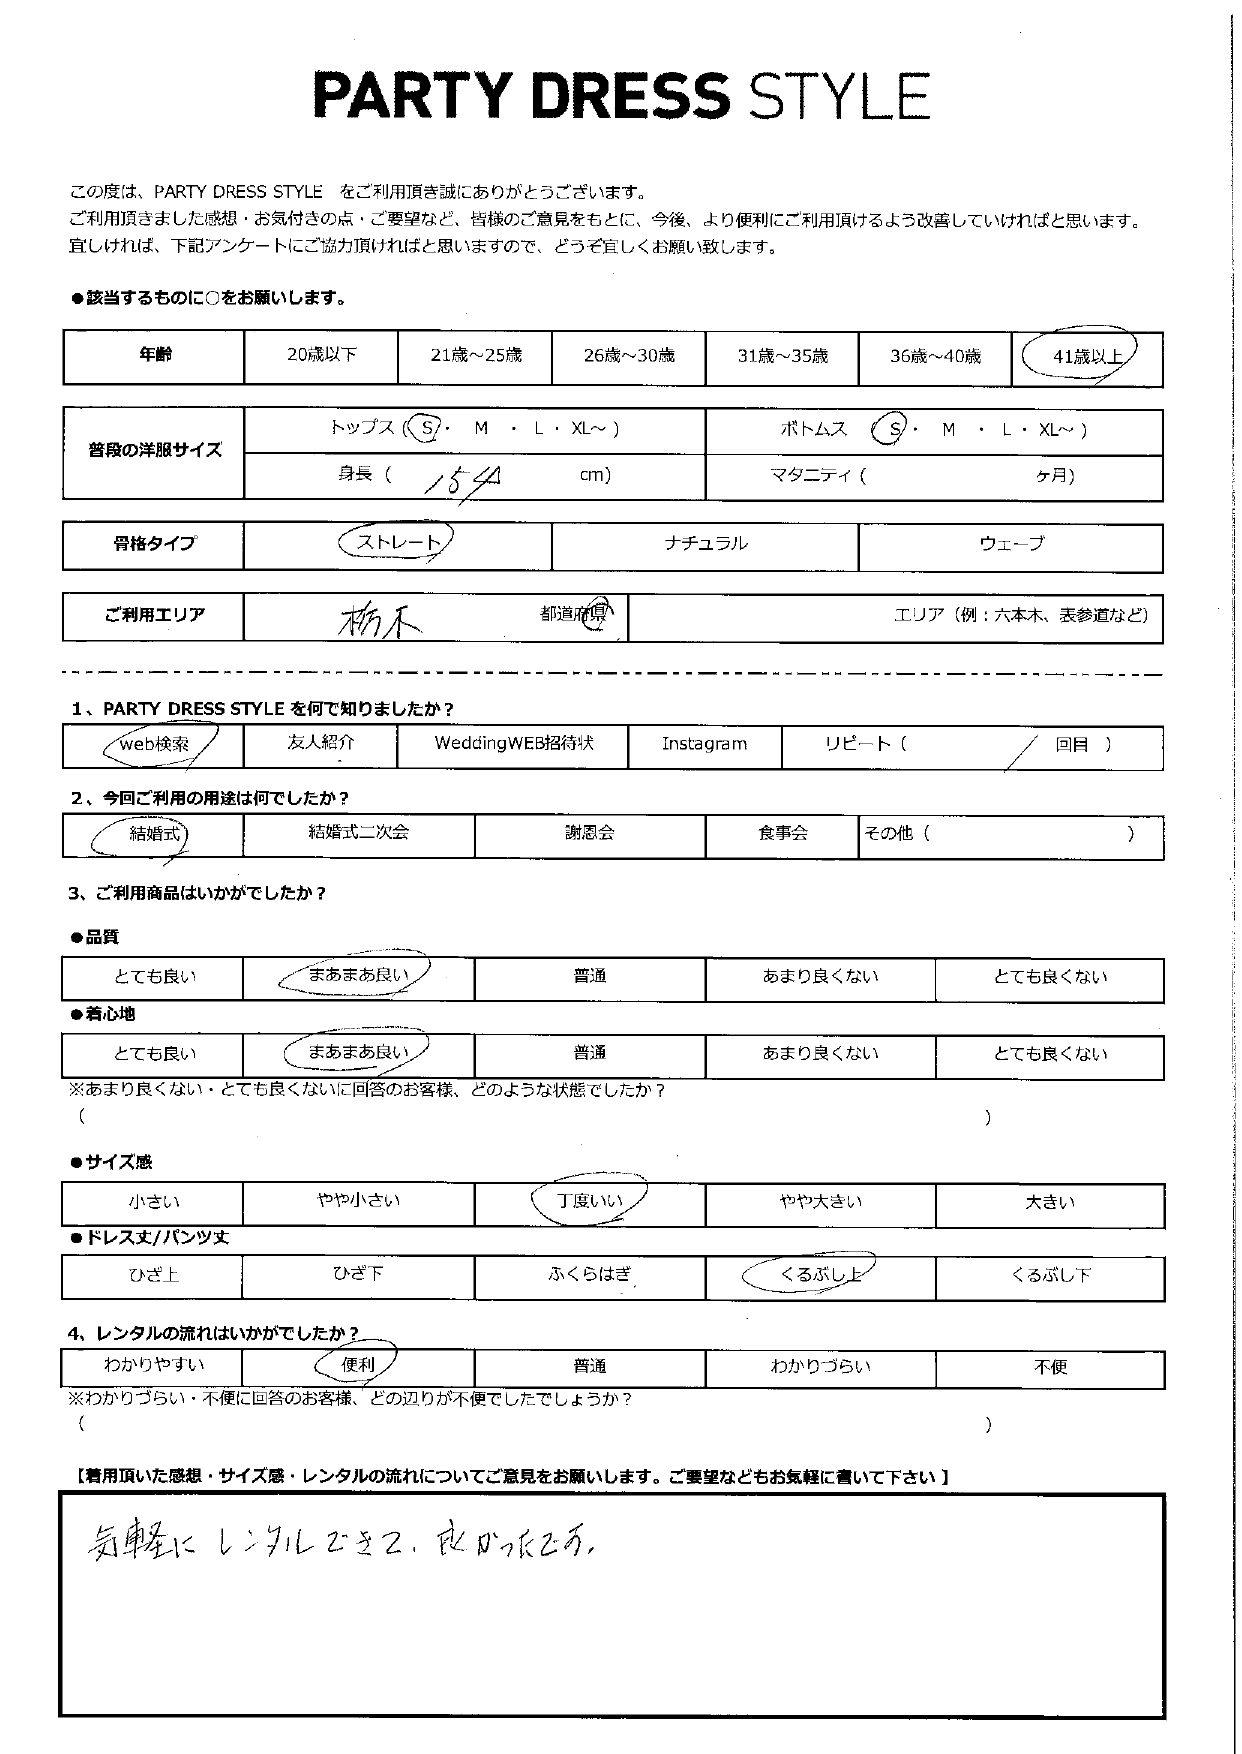 PARTY DRESS STYLE
この度は、PARTY DRESS STYLE をご利用頂き誠にありがとうございます。
ご利用頂きました感想・お気付きの点・ご要望など、皆様のご意見をもとに、今後、より便利にご利用頂けるよう改善していければと思います。
宜しければ、下記アンケートにご協力頂ければと思いますので、どうぞ宜しくお願い致します。
●該当するものに○をお願いします。
年齢 20歳以下 21歳～25歳 26歳～30歳 31歳～35歳 36歳～40歳 41歳以上
普段の洋服サイズ
トップス（ S ・ M ・ L ・ XL～ ） ボトムス （ S ・ M ・ L ・ XL～ ）
身長（ 154 cm） マタニティ（ ヶ月）
骨格タイプ ストレート ナチュラル ウェーブ
ご利用エリア 栃木 都道府県 エリア（例：六本木、表参道など）
1、PARTY DRESS STYLE を何で知りましたか？
web検索 友人紹介 WeddingWEB招待状 Instagram リピート（ / 回目 ）
2、今回ご利用の用途は何でしたか？
結婚式 結婚式二次会 謝恩会 食事会 その他（ ）
3、ご利用商品はいかがでしたか？
●品質
とても良い まあまあ良い 普通 あまり良くない とても良くない
●着心地
とても良い まあまあ良い 普通 あまり良くない とても良くない
※あまり良くない・とても良くないに回答のお客様、どのような状態でしたか？
（ ）
●サイズ感
小さい やや小さい 丁度いい やや大きい 大きい
●ドレス丈/パンツ丈
ひざ上 ひざ下 ふくらはぎ くるぶし上 くるぶし下
4、レンタルの流れはいかがでしたか？
わかりやすい 便利 普通 わかりづらい 不便
※わかりづらい・不便に回答のお客様、どの辺りが不便でしたでしょうか？
（ ）
【着用頂いた感想・サイズ感・レンタルの流れについてご意見をお願いします。ご要望などもお気軽に書いて下さい】
気軽に レンタルできて、良かったです。